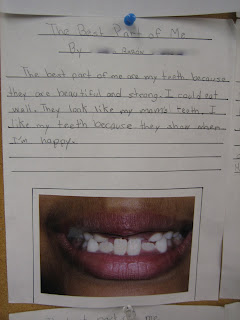 The Best Part of Me
By
The best part of me are my teeth because
they are beautiful and strong. I could eat
well. They look like my mom's teeth. I
like my teeth because they show when
I'm happy.